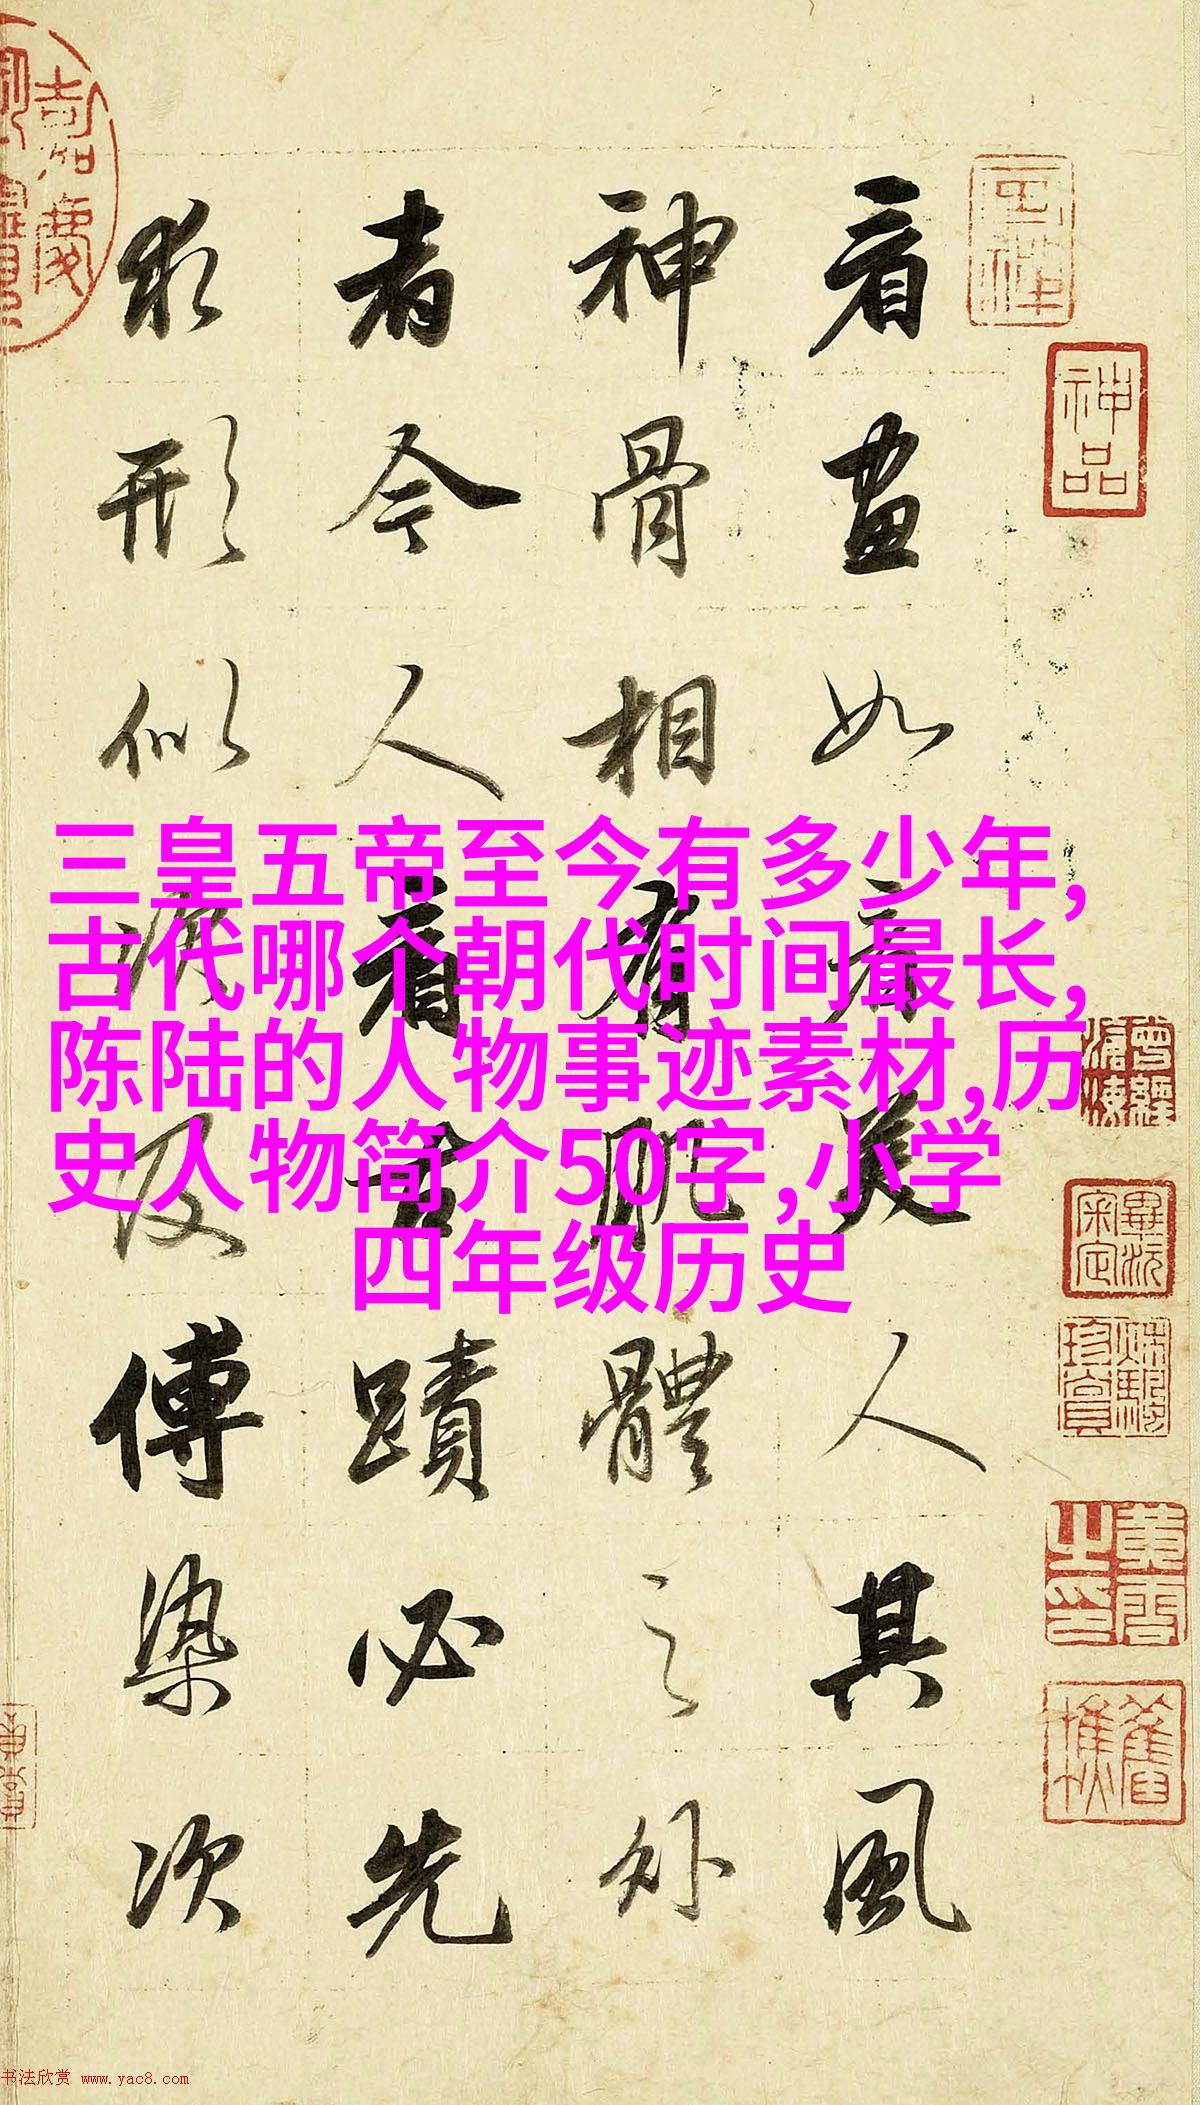 三皇五帝至今有多少年,
古代哪个朝代时间最长,
陈陆的人物事迹素材,历
史人物简介50字,小学
四年级历史
看畫如看美人其風
神骨相有肌體之外
者今人看古蹟必先
求形似及傅染次
神品
嘉慶
书法欣赏 www.yac8.com